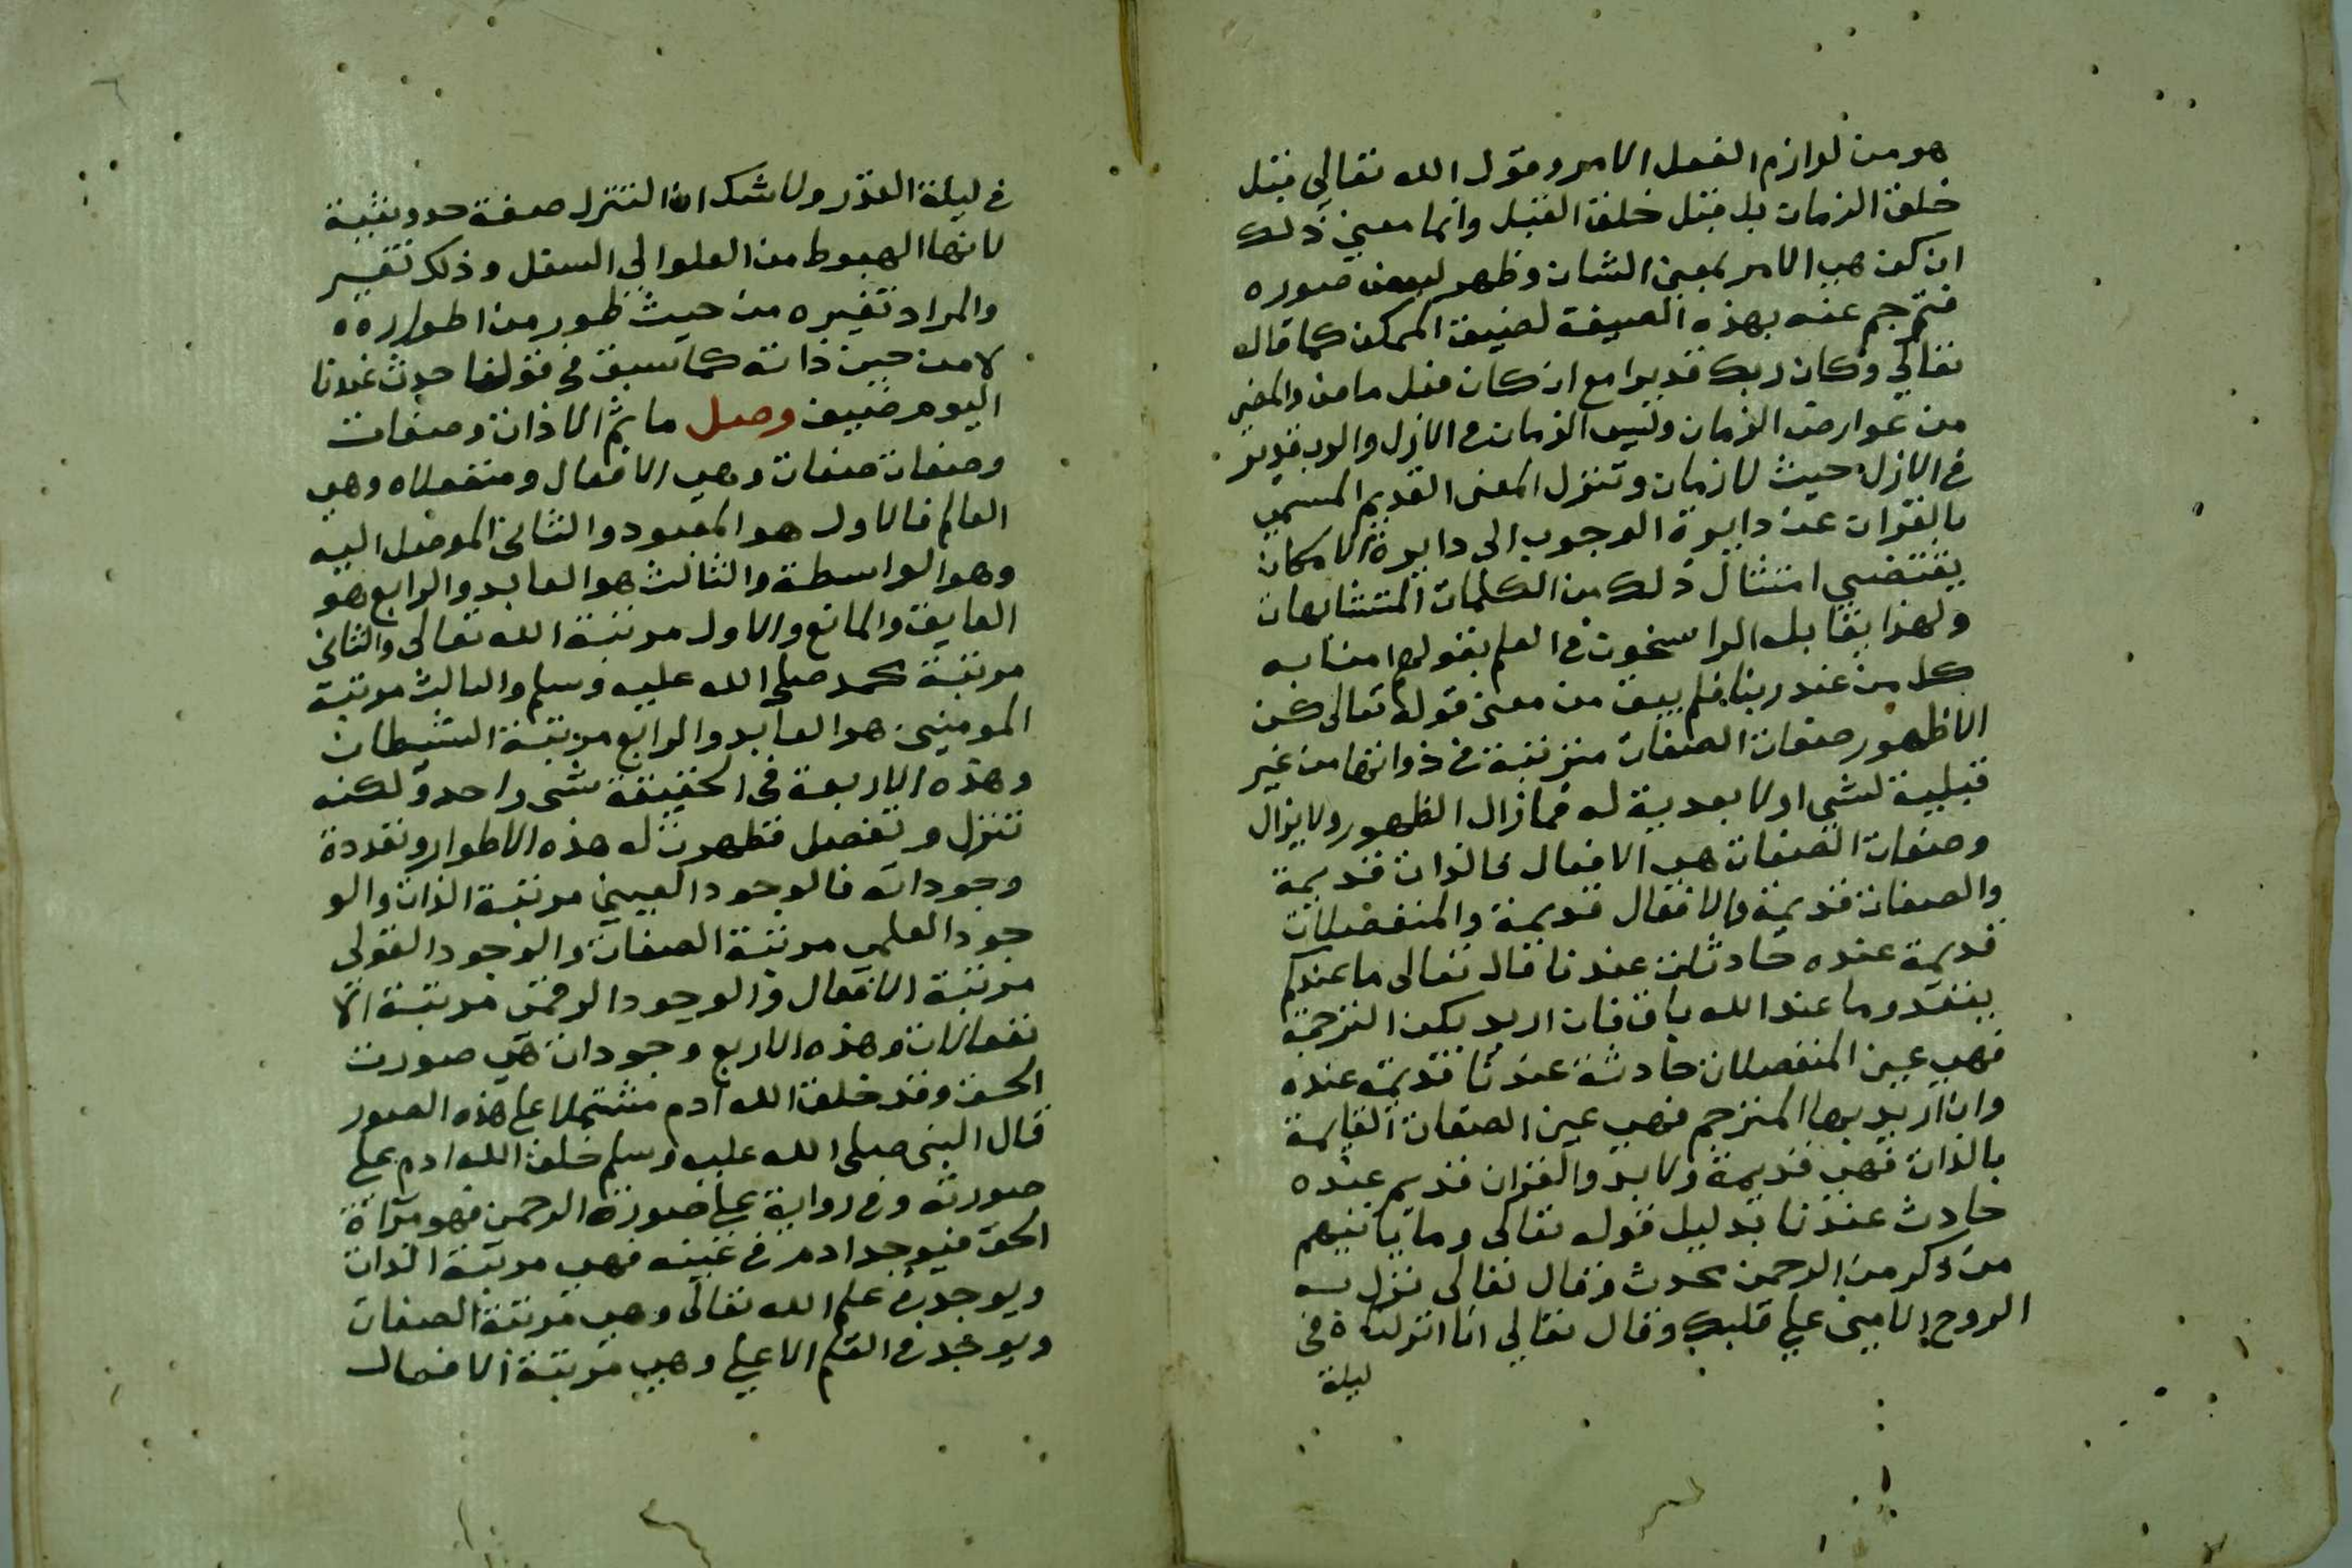 هو من لوازم الفعل الامر وقول الله تعالى قبل
خلق الزمان بل قبل خلق القبل وانما معنى ذلك
ان كن هى الامر بمعنى الشان وظهر لبعض صوره
فترجم عنه بهذه الصيغة لضيق الممكن كما قال
تعالى وكان ربك قديرا مع ان كان فعل ماض والمضى
من عوارض الزمان وليس الزمان فى الازل والرب قدير
فى الازل حيث لا زمان وتنزل المعنى القديم المسمى
بالقران عن دايرة الوجوب الى دايرة الامكان
يقتضى امتثال ذلك من الكلمات المتشابهات
ولهذا يقابله الراسخون فى العلم بقولهم امنا به
كل من عند ربنا فلم يبق من معنى قوله تعالى كن
الا ظهور صفات الصفات مترتبة فى ذواتها من غير
قبلية لشى ولا بعدية له فما زال الظهور ولا يزال
وصفات الصفات هى الافعال فالذات قديمة
والصفات قديمة والافعال قديمة والمنفصلات
قديمة عنده حادثات عندنا قال تعالى ما عندكم
ينفد وما عند الله باق فان اريد بكن الترجمة
فهى عين المنفصلات حادثة عندنا قديمة عنده
وان اريد بها المترجم فهى عين الصفات القايمة
بالذات فهى قديمة ولا بد والقران قديم عنده
حادث عندنا بدليل قوله تعالى وما ياتيهم
من ذكر من الرحمن محدث وقال تعالى نزل به
الروح الامين على قلبك وقال تعالى انا انزلناه فى
ليلة
فى ليلة القدر ولا شك ان التنزل صفة حدوثية
لانها الهبوط من العلو الى السفل وذلك تغير
والمراد تغيره من حيث ظهور من اطواره
لا من حيث ذاته كما سبق فى قولنا حدث عندنا
اليوم ضيف وصل ما ثم الا ذات وصفات
وصفات صفات وهى الافعال ومنفعلاه وهى
العالم فالاول هو المعبود والثانى الموصل اليه
وهو الواسطة والثالث هو العابد والرابع هو
العايق والمانع والاول مرتبة الله تعالى والثانى
مرتبة محمد صلى الله عليه وسلم والثالث مرتبة
المومنين هو العابد والرابع مرتبة الشيطان
وهذه الاربعة فى الحقيقة شى واحد ولكنه
تنزل وتفصل فظهرت له هذه الاطوار وتعددة
وجوداته فالوجود العينى مرتبة الذات والو
جود العلمى مرتبة الصفات والوجود القولى
مرتبة الافعال والوجود الرقمى مرتبة الا
نفعالات وهذه الاربع وجودات هى صورت
الحق وقد خلق الله ادم مشتملا على هذه الصور
قال النبى صلى الله عليه وسلم خلق الله ادم على
صورته وفى رواية على صورة الرحمن فهو مراة
الحق فيوجد ادم فى عينه فهى مرتبة الذات
ويوجد فى علم الله تعالى وهى مرتبة الصفات
ويوجد فى القلم الاعلى وهى مرتبة الافعال